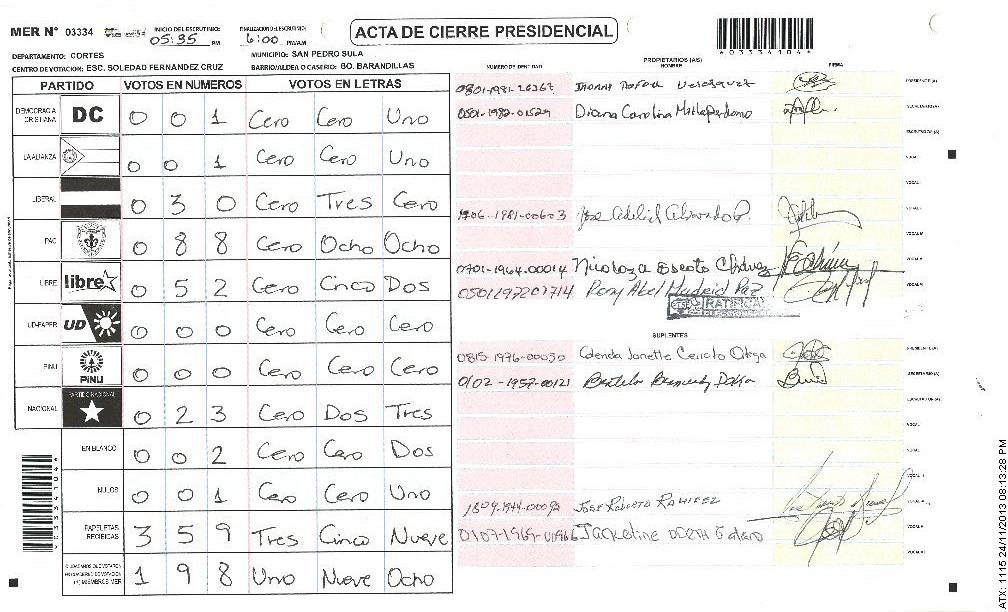 MER N° 03334 INICIO DEL ESCRUTINIO: 05:35 PM FINALIZACION DEL ESCRUTINIO: 6:00 PM/AM
ACTA DE CIERRE PRESIDENCIAL
DEPARTAMENTO: CORTES MUNICIPIO: SAN PEDRO SULA
CENTRO DE VOTACION: ESC. SOLEDAD FERNANDEZ CRUZ BARRIO/ALDEA O CASERIO: BO. BARANDILLAS
PARTIDO VOTOS EN NUMEROS VOTOS EN LETRAS
DEMOCRACIA CRISTIANA DC 0 0 1 Cero Cero Uno
LA ALIANZA 0 0 1 Cero Cero Uno
LIBERAL 0 3 0 Cero Tres Cero
PAC 0 8 8 Cero Ocho Ocho
LIBRE libre 0 5 2 Cero Cinco Dos
UD-FAPER UD 0 0 0 Cero Cero Cero
PINU PINU 0 0 0 Cero Cero Cero
NACIONAL PARTIDO NACIONAL 0 2 3 Cero Dos Tres
EN BLANCO 0 0 2 Cero Cero Dos
NULOS 0 0 1 Cero Cero Uno
PAPELETAS RECIBIDAS 3 5 9 Tres Cinco Nueve
1 9 8 Uno Nueve Ocho
NUMERO DE IDENTIDAD PROPIETARIOS (AS) NOMBRE FIRMA
0801-1981-26367 PRESIDENTE (A)
0501-1982-01529 Diana Carolina SECRETARIO (A)
ESCRUTADOR (A)
VOCAL I
1706-1981-00603 Jose
0701-1964-00014 Nicolaza Escoto Chávez
0501197201714 Rony Abel Madrid Paz
RATIFICA
SUPLENTES
0815-1976-00030 PRESIDENTE (A)
0102-1957-00121 SECRETARIO (A)
ESCRUTADOR (A)
1804-1944-00092 JOSE ROBERTO RAMIREZ
0107-1969-01966 Jackeline
ATX: 1115 24/11/2013 08:13:28 PM